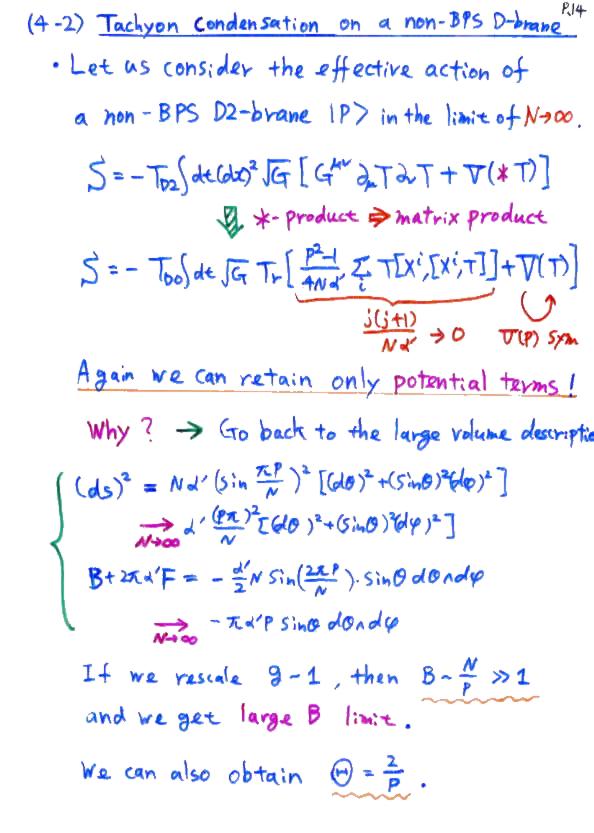 P.14
(4-2) Tachyon Condensation on a non-BPS D-brane
• Let us consider the effective action of
a non-BPS D2-brane |P> in the limit of N→∞.
S = - T_{D2} ∫dt(dx)² √G [ G^{μν} ∂_μ T ∂_ν T + V(*T) ]
⇓ *-product ⇒ matrix product
S = - T_{D0} ∫dt √G Tr[ \frac{P²-1}{4Nα'} Σ_i T[X^i,[X^i,T]] + V(T) ]
\frac{j(j+1)}{Nα'} → 0 U(P) sym
Again we can retain only potential terms!
Why? → Go back to the large volume descriptio
(ds)² = Nα' (sin \frac{πP}{N})² [(dθ)² + (sinθ)²(dφ)²]
→ N→∞ α' \frac{(Pπ)²}{N} [(dθ)² + (sinθ)²(dφ)²]
B + 2πα'F = - \frac{α'}{2} N sin(\frac{2πP}{N}) · sinθ dθ∧dφ
→ N→∞ - πα'P sinθ dθ∧dφ
If we rescale g~1, then B ~ \frac{N}{P} ≫ 1
and we get large B limit.
We can also obtain Θ = \frac{2}{P}.